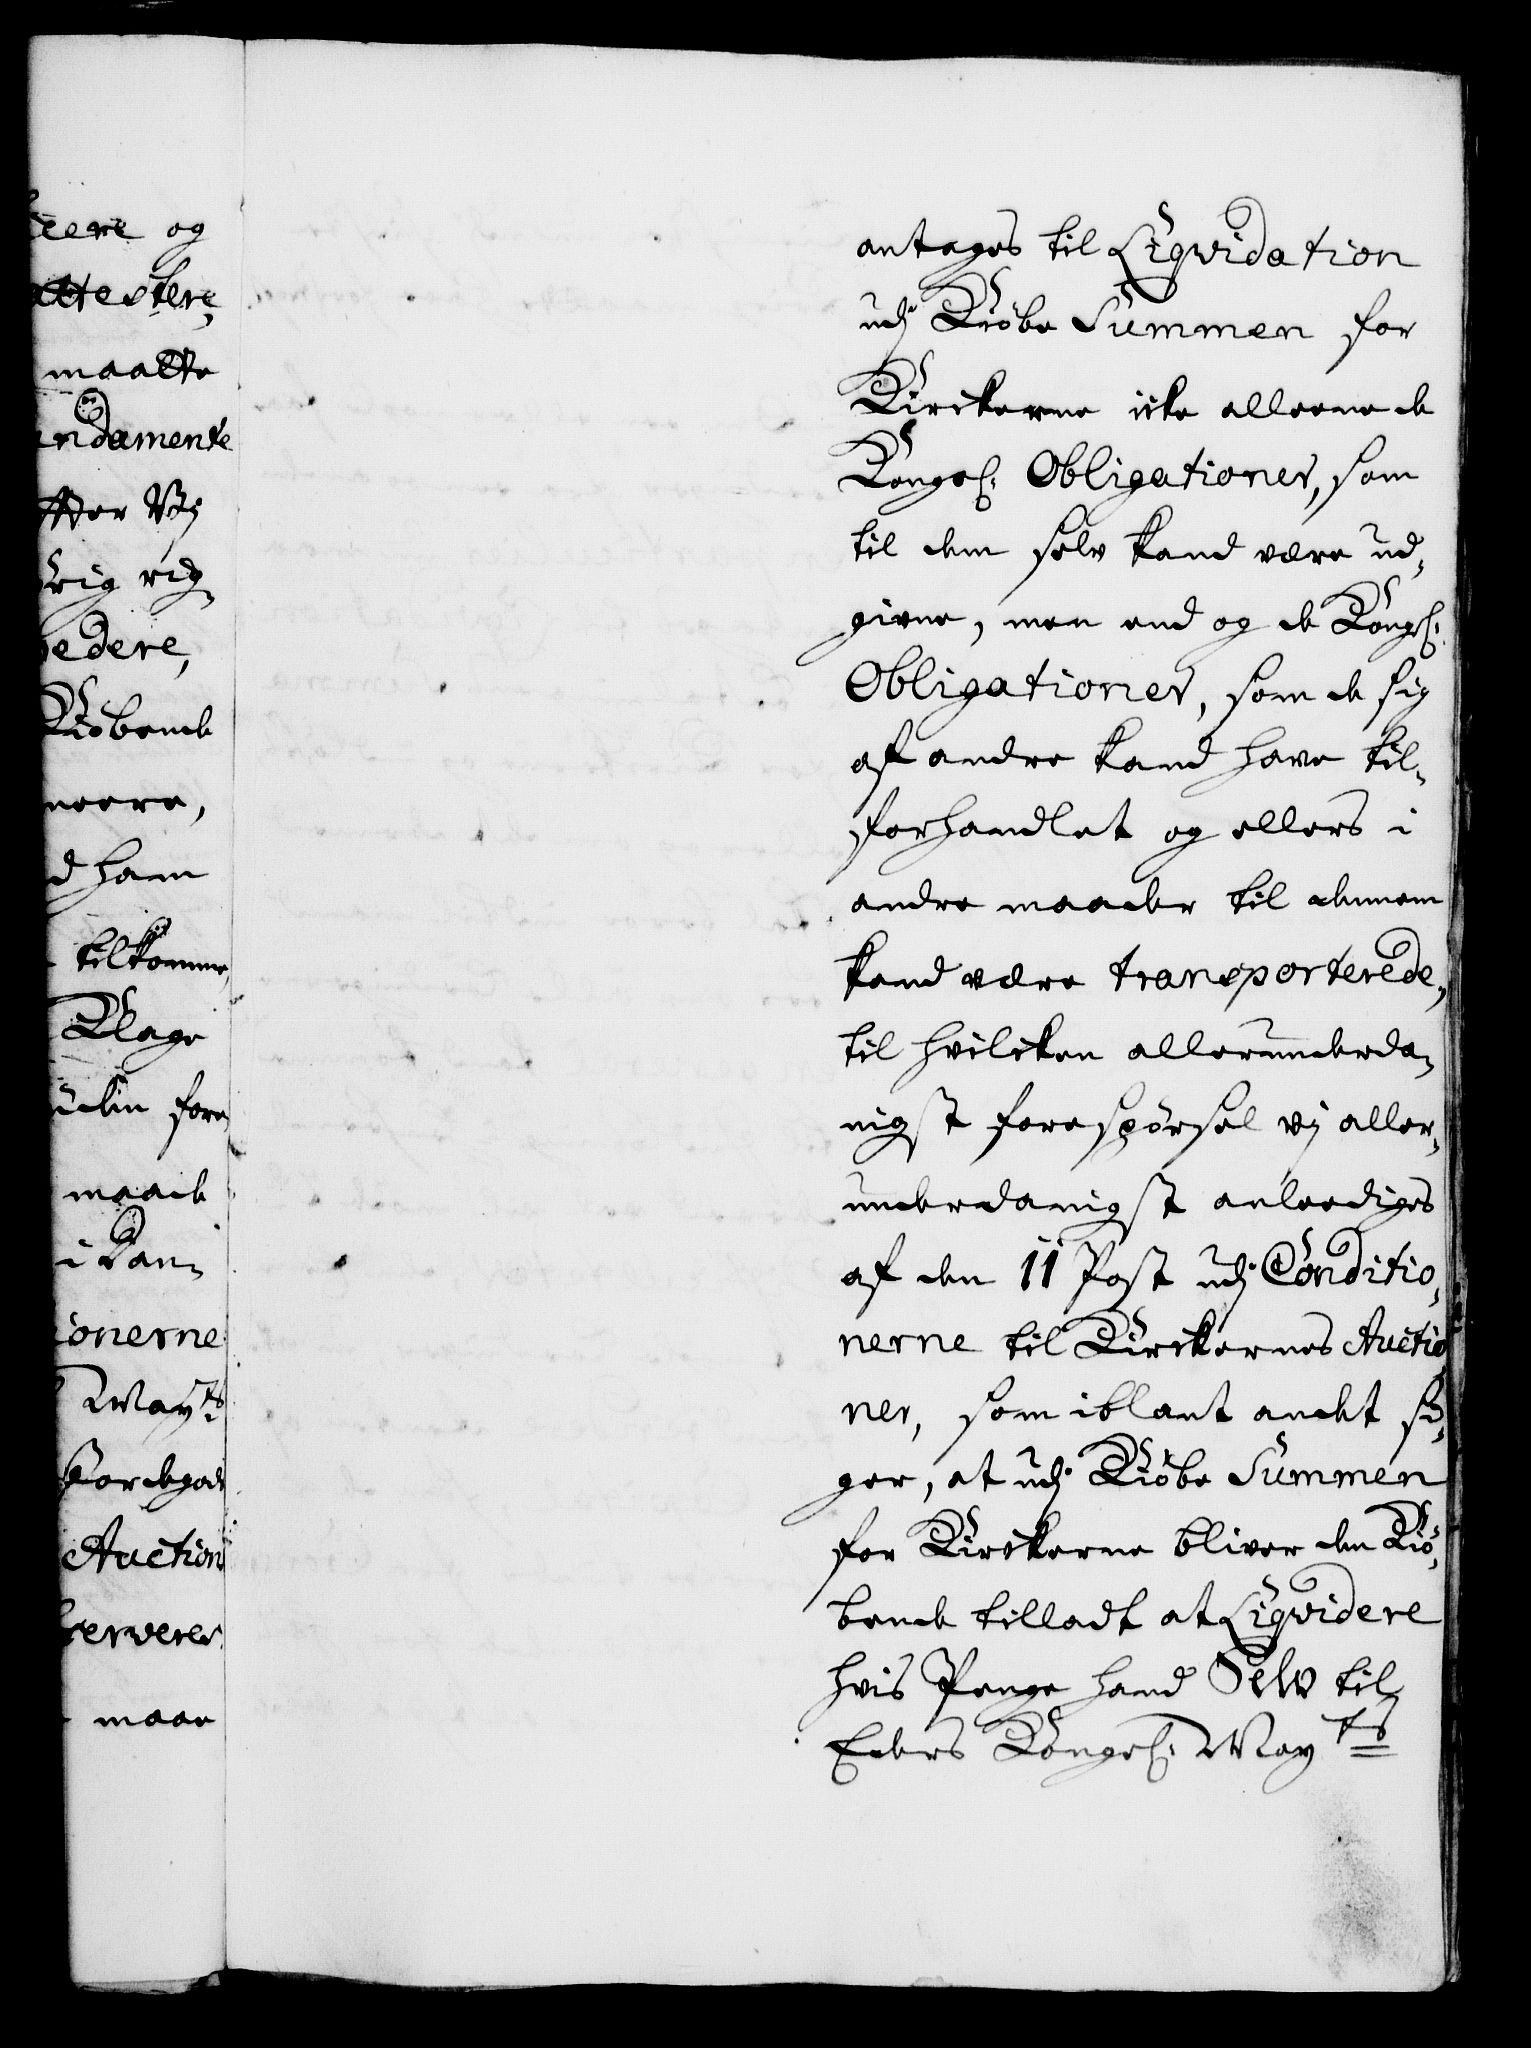 eere og
attestere,
maatte
ndamente
fter Vj
örig rig-
edere,
Kiöbende
neere,
d ham
tilkomme,
Klage
fore
maade
i Dan-
onerne
May:ts
Jordegods
Auction
serveres
maae
antages til Liqvidation
udj Kiöbe Summen for
Kirckerne icke alleene de
Kongel: Obligationer, som
til dem selv kand være ud-
givne, men end og de Kongl:
Obligationer, som de sig
af andre kand have til-
forhandlet og ellers i
andre maader til dennem
kand være transporterede,
til hvilcken allerunderda-
nigst forespörsel vj aller-
underdanigst anleediges
af den 11 Post udj Conditio-
nerne til Kirckernes Auctio-
ner, som iblant andet si-
ger, at udj Kiöbe Summen
for Kirckerne bliver den Kiö-
bende tilladt at Liqvidere
hvis Penge hand Selv til
Eders Kongel: May:ts